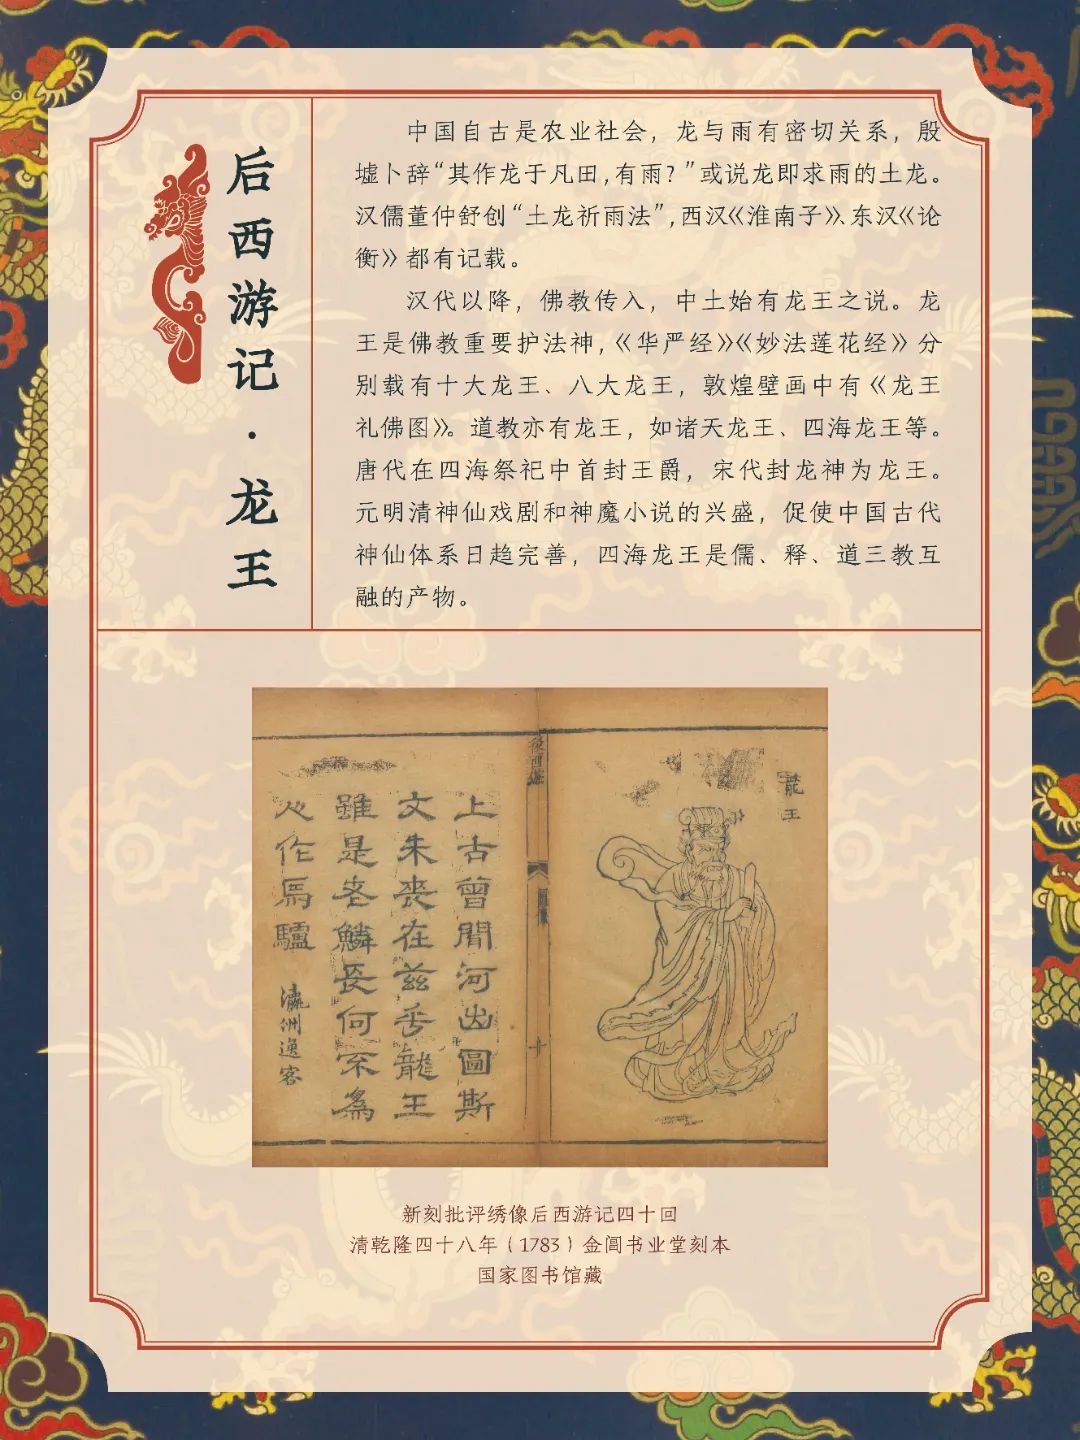 后西游记·龙王
中国自古是农业社会，龙与雨有密切关系，殷
墟卜辞“其作龙于凡田，有雨？”或说龙即求雨的土龙。
汉儒董仲舒创“土龙祈雨法”，西汉《淮南子》、东汉《论
衡》都有记载。
汉代以降，佛教传入，中土始有龙王之说。龙
王是佛教重要护法神，《华严经》《妙法莲花经》分
别载有十大龙王、八大龙王，敦煌壁画中有《龙王
礼佛图》。道教亦有龙王，如诸天龙王、四海龙王等。
唐代在四海祭祀中首封王爵，宋代封龙神为龙王。
元明清神仙戏剧和神魔小说的兴盛，促使中国古代
神仙体系日趋完善，四海龙王是儒、释、道三教互
融的产物。
龍王
後西遊
十
上古曾聞河出圖斯
文未喪在茲乎龍王
雖是老鱗長何不為
心作馬驢
瀛洲逸客
新刻批评绣像后西游记四十回
清乾隆四十八年（1783）金阊书业堂刻本
国家图书馆藏